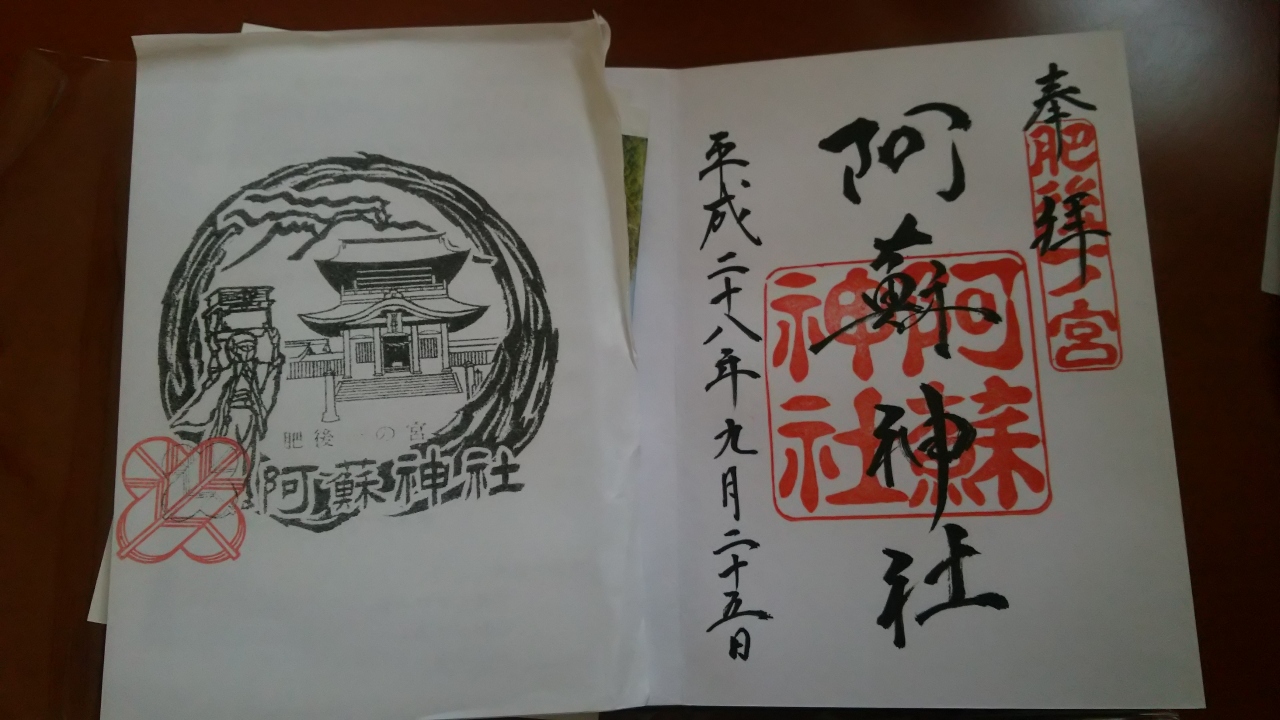 奉拝
肥後一宮
阿蘇神社
阿蘇神社
平成二十八年九月二十五日
肥後一の宮
阿蘇神社